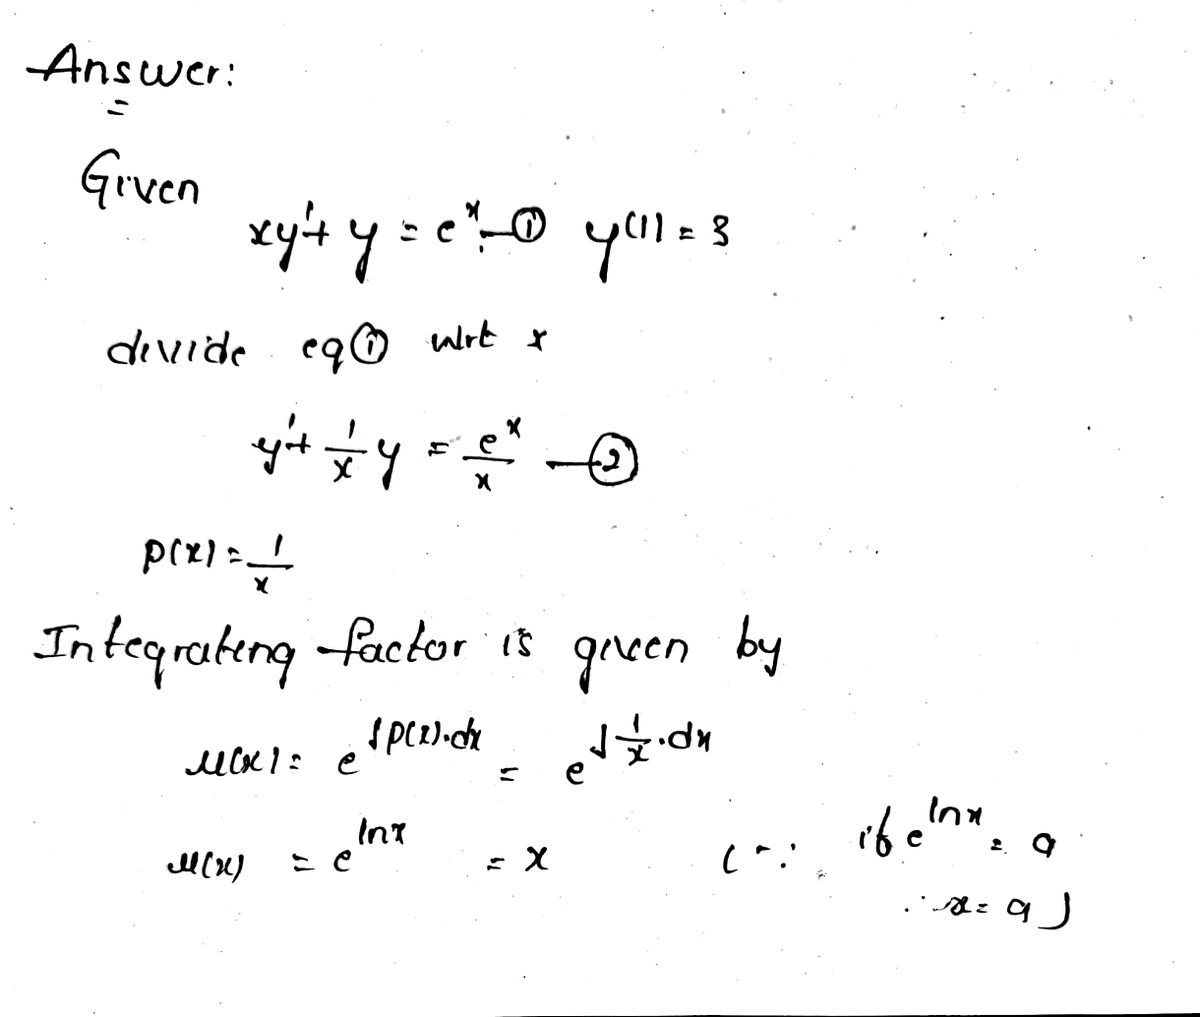 Answer:
=
Given
xy' + y = e^x. —① y(1) = 3
divide eq① wrt x
y' + 1/x y = e^x/x —②
p(x) = 1/x
Integrating factor is given by
μ(x) = e^∫p(x)·dx = e^∫1/x·dx
μ(x) = e^lnx = x (∵ if e^lnx = a
∴ x = a)